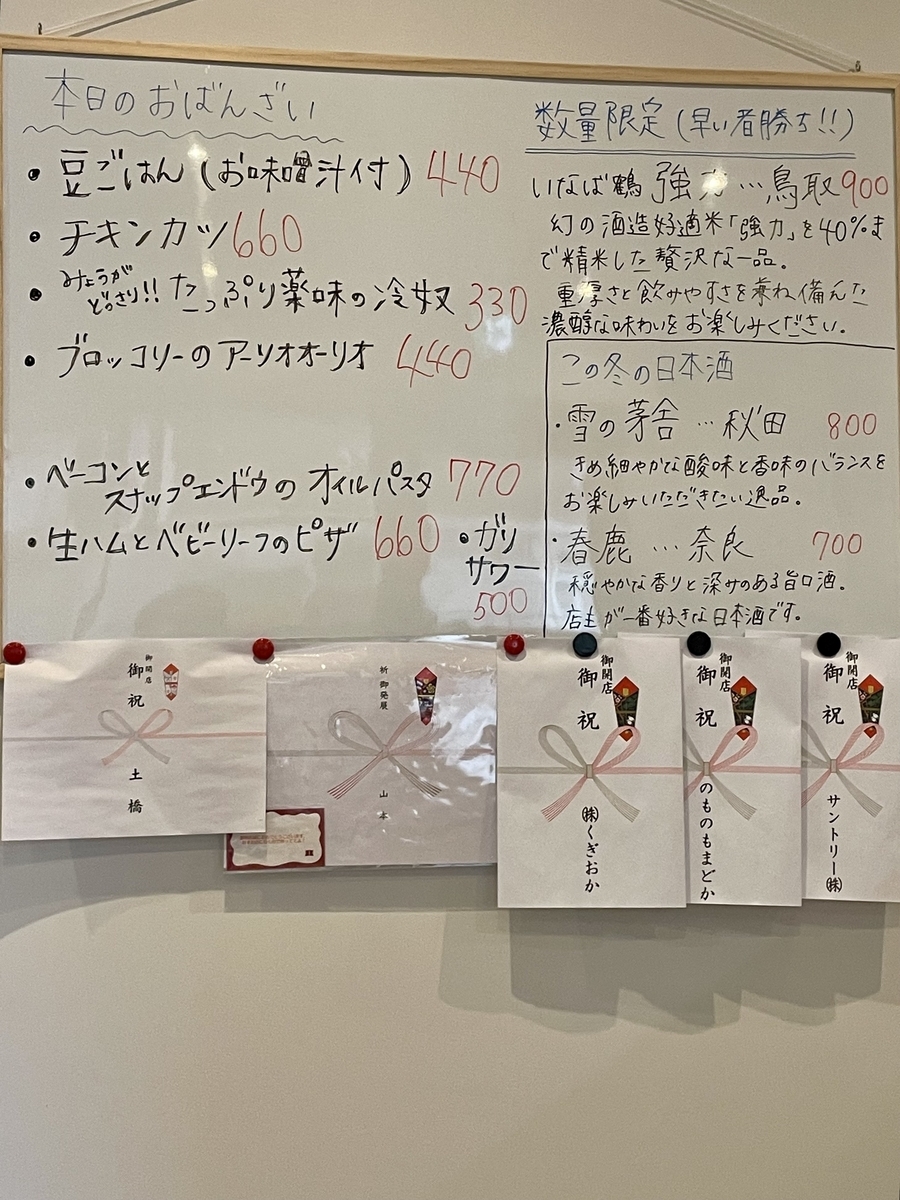 本日のおばんざい
・豆ごはん(お味噌汁付) 440
・チキンカツ 660
・みょうがどっさり!! たっぷり薬味の冷奴 330
・ブロッコリーのアーリオオーリオ 440
・ベーコンと
スナップエンドウのオイルパスタ 770
・生ハムとベビーリーフのピザ 660
・ガリ
サワー
500
数量限定(早い者勝ち!!)
いなば鶴 強力…鳥取 900
幻の酒造好適米「強力」を40%ま
で精米した贅沢な一品。
重厚さと飲みやすさを兼ね備んた
濃醇な味わいをお楽しみください。
この冬の日本酒
・雪の茅舎…秋田 800
きめ細やかな酸味と香味のバランスを
お楽しみいただきたい逸品。
・春鹿…奈良 700
穏やかな香りと深みのある旨口酒。
店主が一番好きな日本酒です。
御開店
御祝
土橋
祈御発展
山本
御開店
御祝
㈱くぎおか
御開店
御祝
のものもまどか
御開店
御祝
サントリー㈱